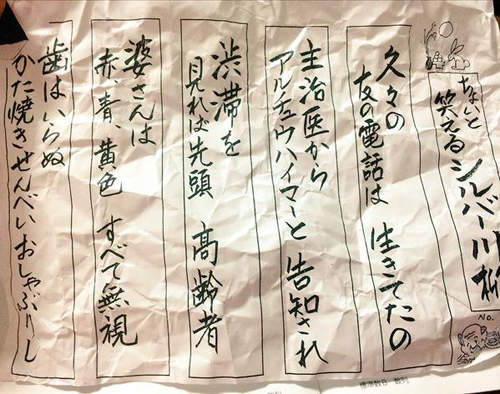 ちょいと
笑えるシルバー川柳
No.
久々の
友の電話は 生きてたの
主治医から
アルチュウハイマーと 告知され
渋滞を
見れば先頭 高齢者
婆さんは
赤、青、黄色 すべて無視
歯はいらぬ
かた焼きせんべいおしゃぶりし